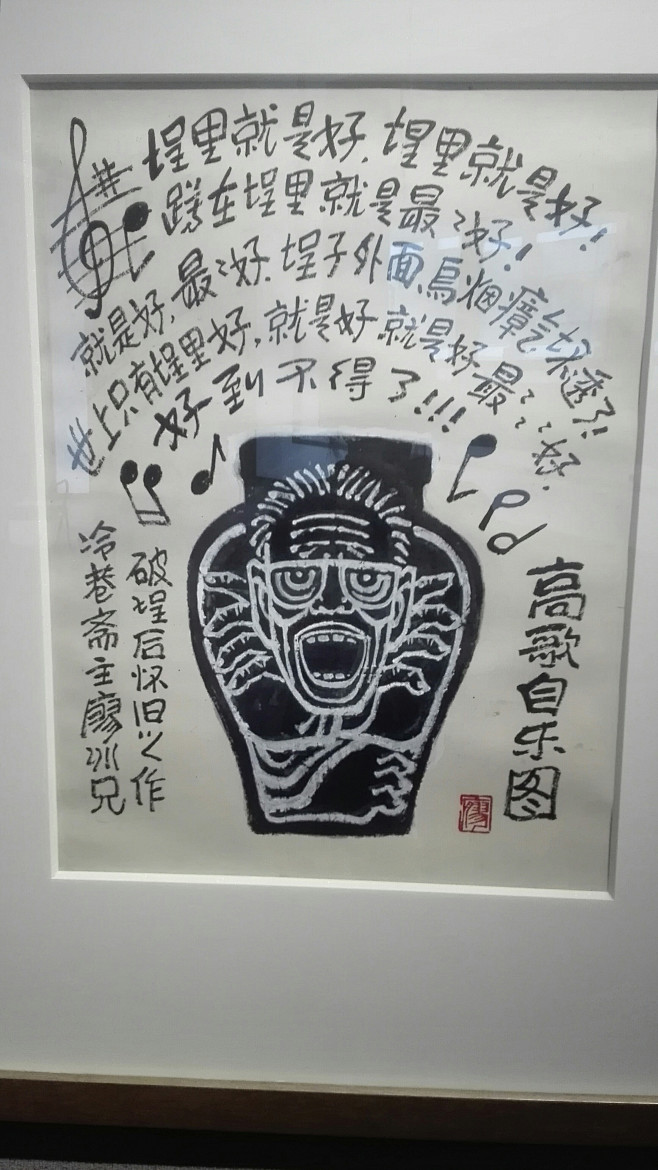 埕里就是好,埕里就是好!
蹲在埕里就是最〻好!
就是好,最〻好.埕子外面,烏烟瘴气坏透了!!
世上只有埕里好,就是好就是好最〻〻好.
好到不得了!!!
高歌自乐图
破埕后怀旧之作
冷巷斋主廖冰兄
廖